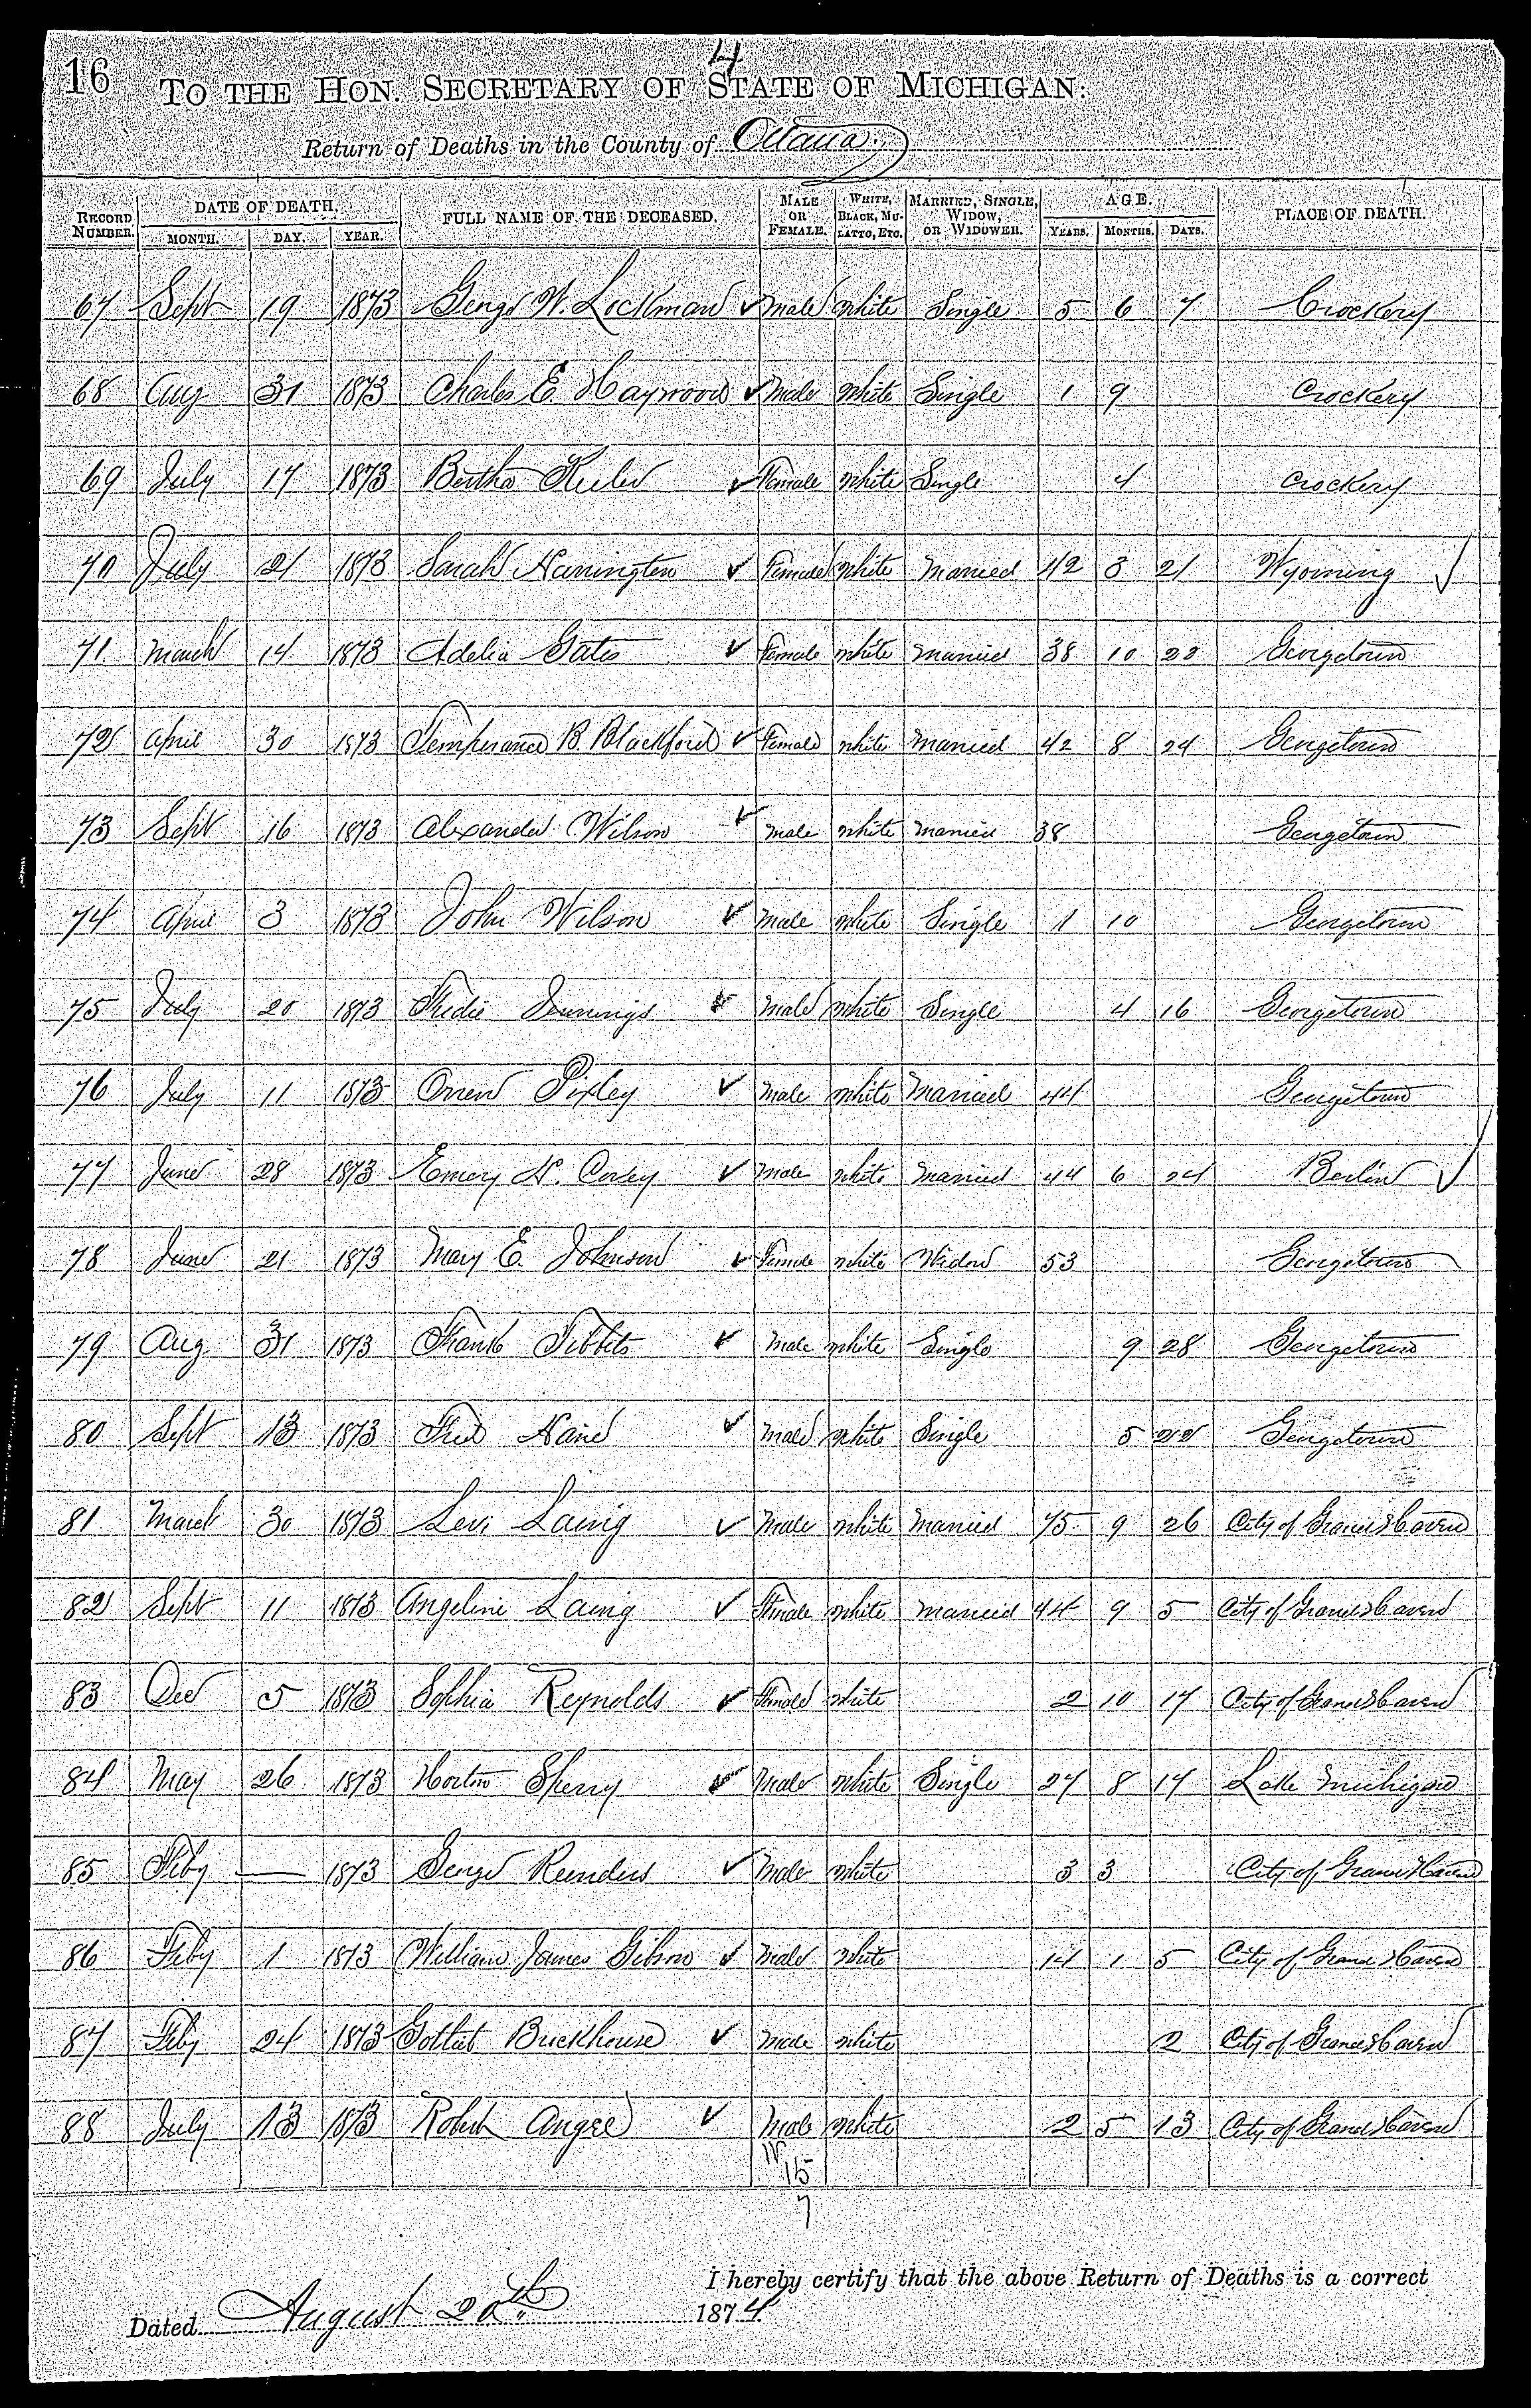 4
16 TO THE HON. SECRETARY OF STATE OF MICHIGAN:
Return of Deaths in the County of Ottawa
RECORD NUMBER. DATE OF DEATH. MONTH. DAY. YEAR. FULL NAME OF THE DECEASED. MALE OR FEMALE. WHITE, BLACK, MULATTO, ETC. MARRIED, SINGLE, WIDOW, OR WIDOWER. AGE. YEARS. MONTHS. DAYS. PLACE OF DEATH.
67 Sept 19 1873 George W. Lockman Male White Single 5 6 7 Crockery
68 Aug 31 1873 Charles E. Haywood Male White Single 1 9 Crockery
69 July 17 1873 Bertha Keeler Female White Single 4 Crockery
70 July 21 1873 Sarah Harrington Female White Married 42 3 21 Wyoming
71 March 14 1873 Adelia Gates Female White Married 38 10 22 Georgetown
72 April 30 1873 Temperance B. Blackford Female White Married 42 8 24 Georgetown
73 Sept 16 1873 Alexander Wilson Male White Married 38 Georgetown
74 April 3 1873 John Wilson Male White Single 1 10 Georgetown
75 July 20 1873 Fredie Jennings Male White Single 4 16 Georgetown
76 July 11 1873 Orren Pixley Male White Married 44 Georgetown
77 June 28 1873 Emery H. Covey Male White Married 44 6 24 Berlin
78 June 21 1873 Mary E. Johnson Female White Widow 53 Georgetown
79 Aug 31 1873 Frank Tibbits Male White Single 9 28 Georgetown
80 Sept 13 1873 Fred Male White Single 5 22 Georgetown
81 March 30 1873 Levi Laing Male White Married 75 9 26 City of Grand Haven
82 Sept 11 1873 Angeline Laing Female White Married 44 9 5 City of Grand Haven
83 Dec 5 1873 Sophia Reynolds Female White 2 10 17 City of Grand Haven
84 May 26 1873 Horton Sperry Male White Single 27 8 17 Lake Michigan
85 Feby — 1873 George Reenders Male White 3 3 City of Grand Haven
86 Feby 1 1873 William James Gibson Male White 14 1 5 City of Grand Haven
87 Feby 24 1873 Gottlieb Buckhouse Male White 2 City of Grand Haven
88 July 13 1873 Robert Angel Male White 2 5 13 City of Grand Haven
15
7
I hereby certify that the above Return of Deaths is a correct
Dated August 20th 1874